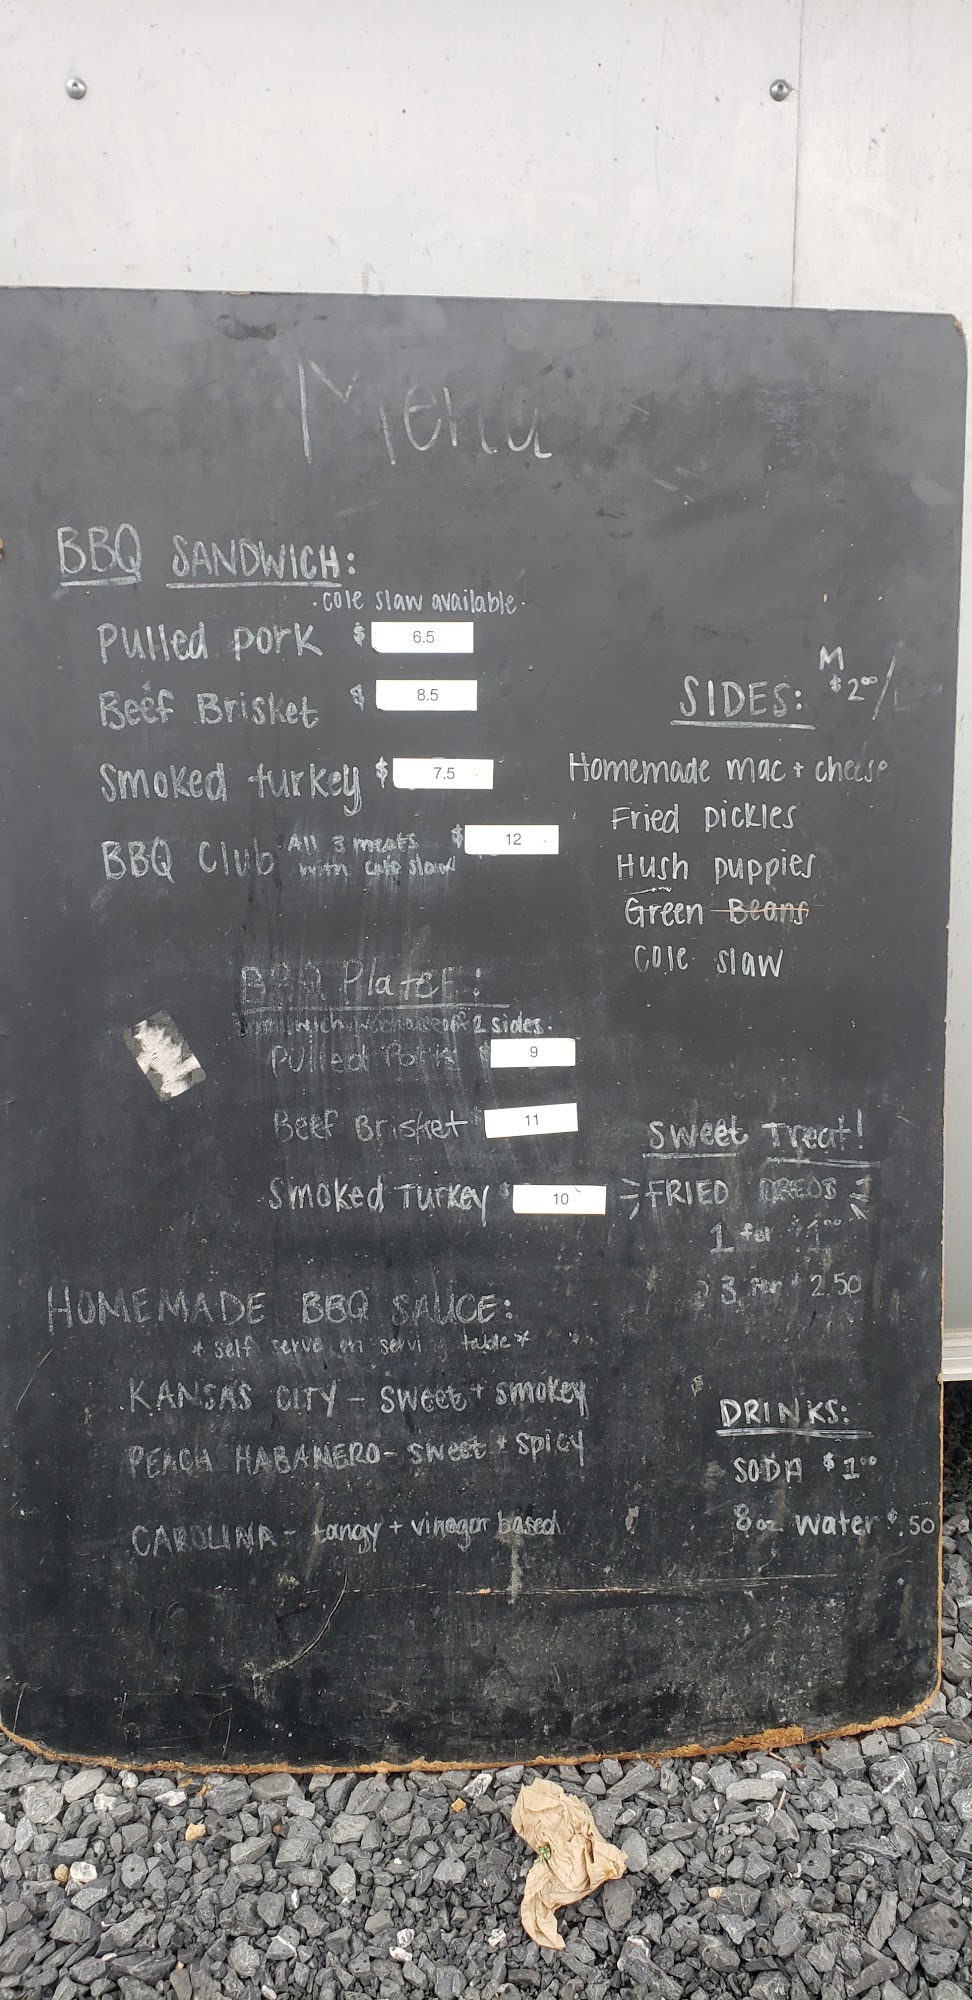 Menu
BBQ SANDWICH:
· cole slaw available ·
Pulled pork $ 6.5
Beef Brisket $ 8.5
Smoked turkey $ 7.5
BBQ Club All 3 meats with cole slaw $ 12
SIDES: M $2⁰⁰/L
Homemade mac + cheese
Fried pickles
Hush puppies
Green Beans
Cole slaw
BBQ Plates:
2 sides.
Pulled Pork $ 9
Beef Brisket $ 11
Smoked Turkey $ 10
Sweet Treat!
FRIED OREOS
1 for $1⁰⁰
3 for $2.50
HOMEMADE BBQ SAUCE:
* self serve on servi g table *
KANSAS CITY - sweet + smokey
PEACH HABANERO - sweet + spicy
CAROLINA - tangy + vinegar based
DRINKS:
SODA $1⁰⁰
8oz water $.50